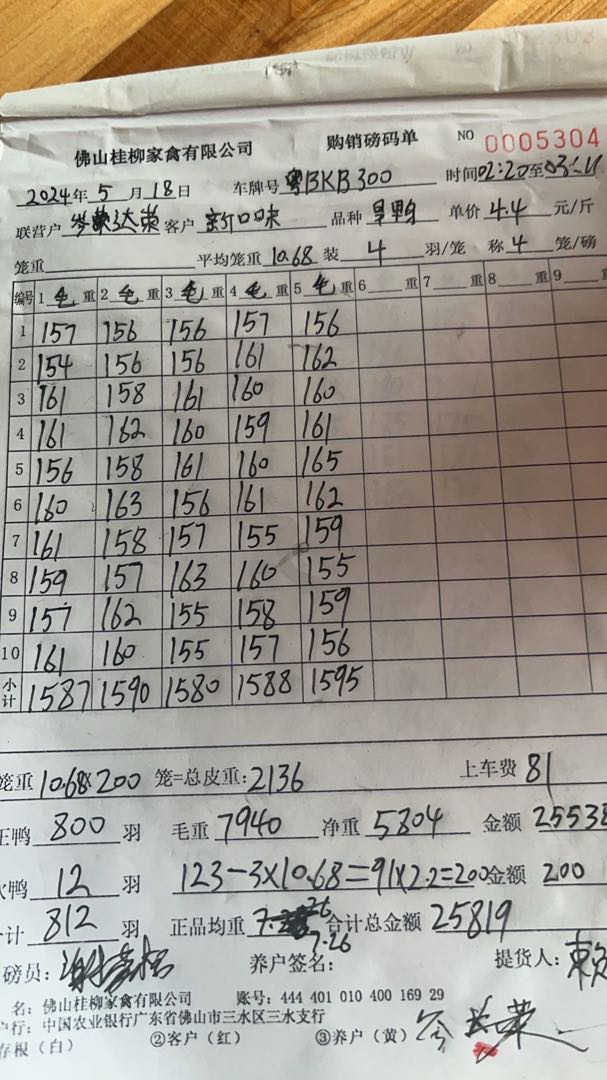 佛山桂柳家禽有限公司 购销磅码单 NO 0005304
2024年 5 月 18 日 车牌号 粤BKB300 时间02:20至
联营户 达荣 客户 新口味 品种 旱鸭 单价 4.4 元/斤
笼重 平均笼重 10.68 装 4 羽/笼 称 4 笼/磅
编号 1 毛 重 2 毛 重 3 毛 重 4 毛 重 5 毛 重 6 重 7 重 8 重 9
1 157 156 156 157 156
2 154 156 156 161 162
3 161 158 161 160 160
4 161 162 160 159 161
5 156 158 161 160 165
6 160 163 156 161 162
7 161 158 157 155 159
8 159 157 163 160 155
9 157 162 155 158 159
10 161 160 155 157 156
小计 1587 1590 1580 1588 1595
笼重 10.68×200 笼=总皮重: 2136 上车费 81
正鸭 800 羽 毛重 7940 净重 5804 金额 25538
次鸭 12 羽 123-3×10.68=91×2.2=200 金额 200
合计 812 羽 正品均重 7.26 合计总金额 25819
磅员: 养户签名: 提货人: 赖
名: 佛山桂柳家禽有限公司 账号: 444 401 010 400 169 29
户行: 中国农业银行广东省佛山市三水区三水支行
存根（白） ②客户（红） ③养户（黄）